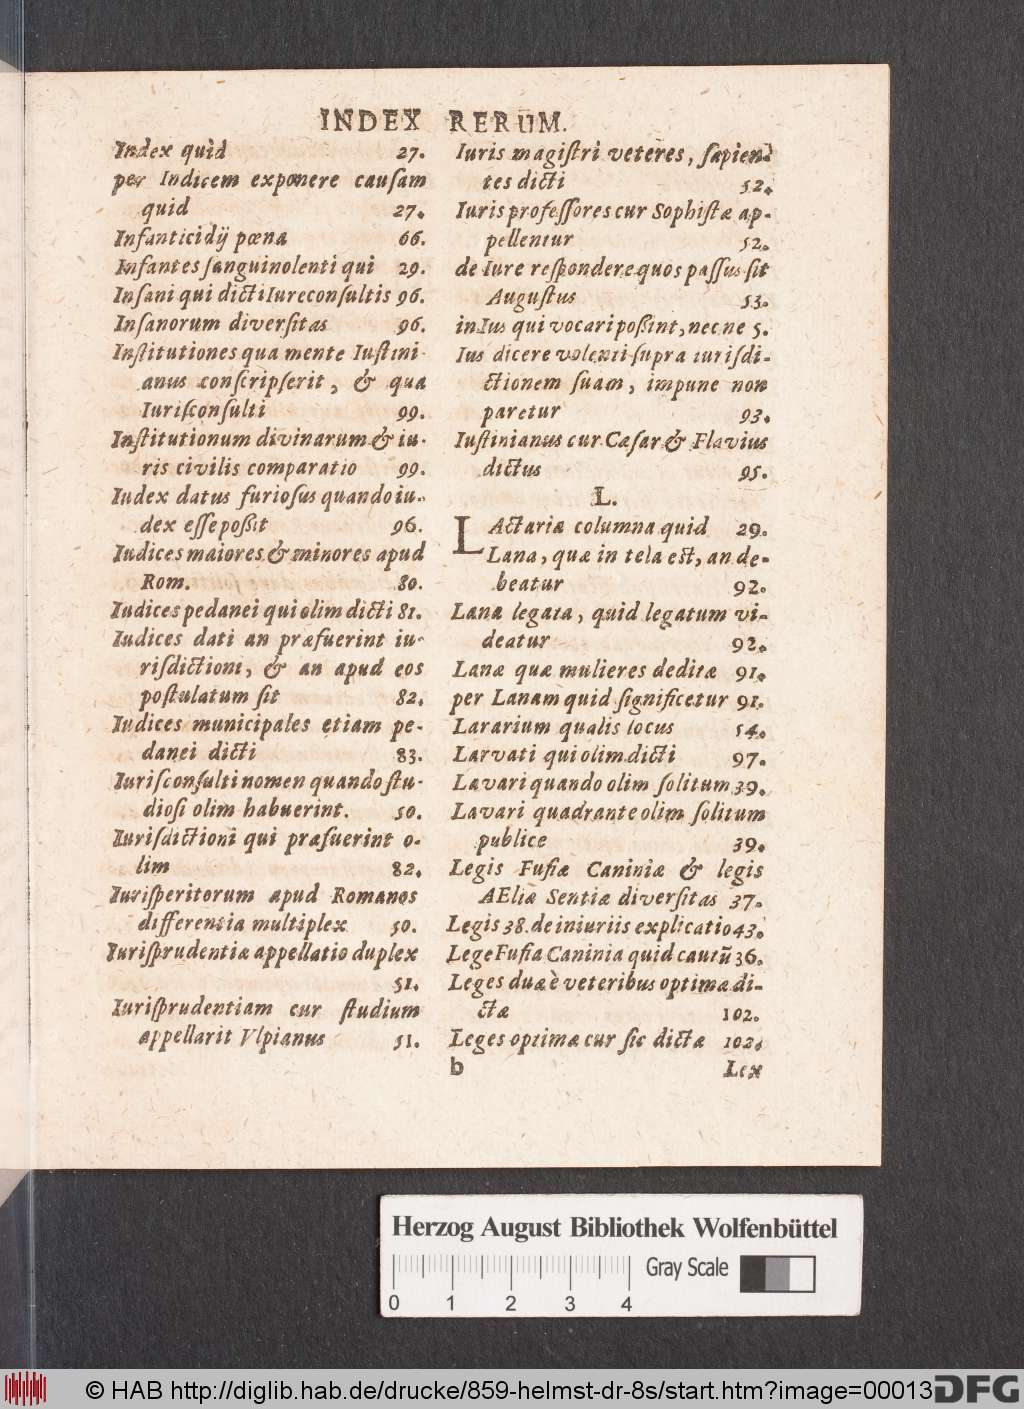 INDEX RERUM.
Index quid 27.
per Indicem exponere causam
quid 27.
Infanticidij pœna 66.
Infantes ſanguinolenti qui 29.
Inſani qui dicti Iureconſultis 96.
Inſanorum diverſitas 96.
Inſtitutiones qua mente Iuſtini-
anus conſcripſerit, & qua
Iuriſconſulti 99.
Inſtitutionum divinarum & iu-
ris civilis comparatio 99.
Iudex datus furioſus quando iu-
dex eſſe poßit 96.
Iudices maiores & minores apud
Rom. 80.
Iudices pedanei qui olim dicti 81.
Iudices dati an præfuerint iu-
riſdictioni, & an apud eos
poſtulatum ſit 82.
Iudices municipales etiam pe-
danei dicti 83.
Iuriſconſulti nomen quando ſtu-
dioſi olim habuerint. 50.
Iuriſdictioni qui præfuerint o-
lim 82.
Iuriſperitorum apud Romanos
differentia multiplex 50.
Iuriſprudentiæ appellatio duplex
51.
Iuriſprudentiam cur ſtudium
appellarit Vlpianus 51.
Iuris magiſtri veteres, ſapien-
tes dicti 52.
Iuris profeſſores cur Sophiſtæ ap-
pellentur 52.
de Iure reſpondere quos paſſus ſit
Auguſtus 53.
in Ius qui vocari poßint, nec ne 5.
Ius dicere volenti ſupra iuriſdi-
ctionem ſuam, impune non
paretur 93.
Iuſtinianus cur Cæſar & Flavius
dictus 95.
L.
LActariæ columna quid 29.
Lana, quæ in tela est, an de-
beatur 92.
Lana legata, quid legatum vi-
deatur 92.
Lanæ quæ mulieres deditæ 91.
per Lanam quid ſignificetur 91.
Lararium qualis locus 54.
Larvati qui olim dicti 97.
Lavari quando olim ſolitum 39.
Lavari quadrante olim ſolitum
publice 39.
Legis Fuſiæ Caniniæ & legis
AEliæ Sentiæ diverſitas 37.
Legis 38. de iniuriis explicatio 43.
Lege Fuſia Caninia quid cautũ 36.
Leges duæ è veteribus optimæ di-
ctæ 102.
Leges optimæ cur ſic dictæ 102.
b Lex
Herzog August Bibliothek Wolfenbüttel
Gray Scale
0 1 2 3 4
© HAB http://diglib.hab.de/drucke/859-helmst-dr-8s/start.htm?image=00013
DFG